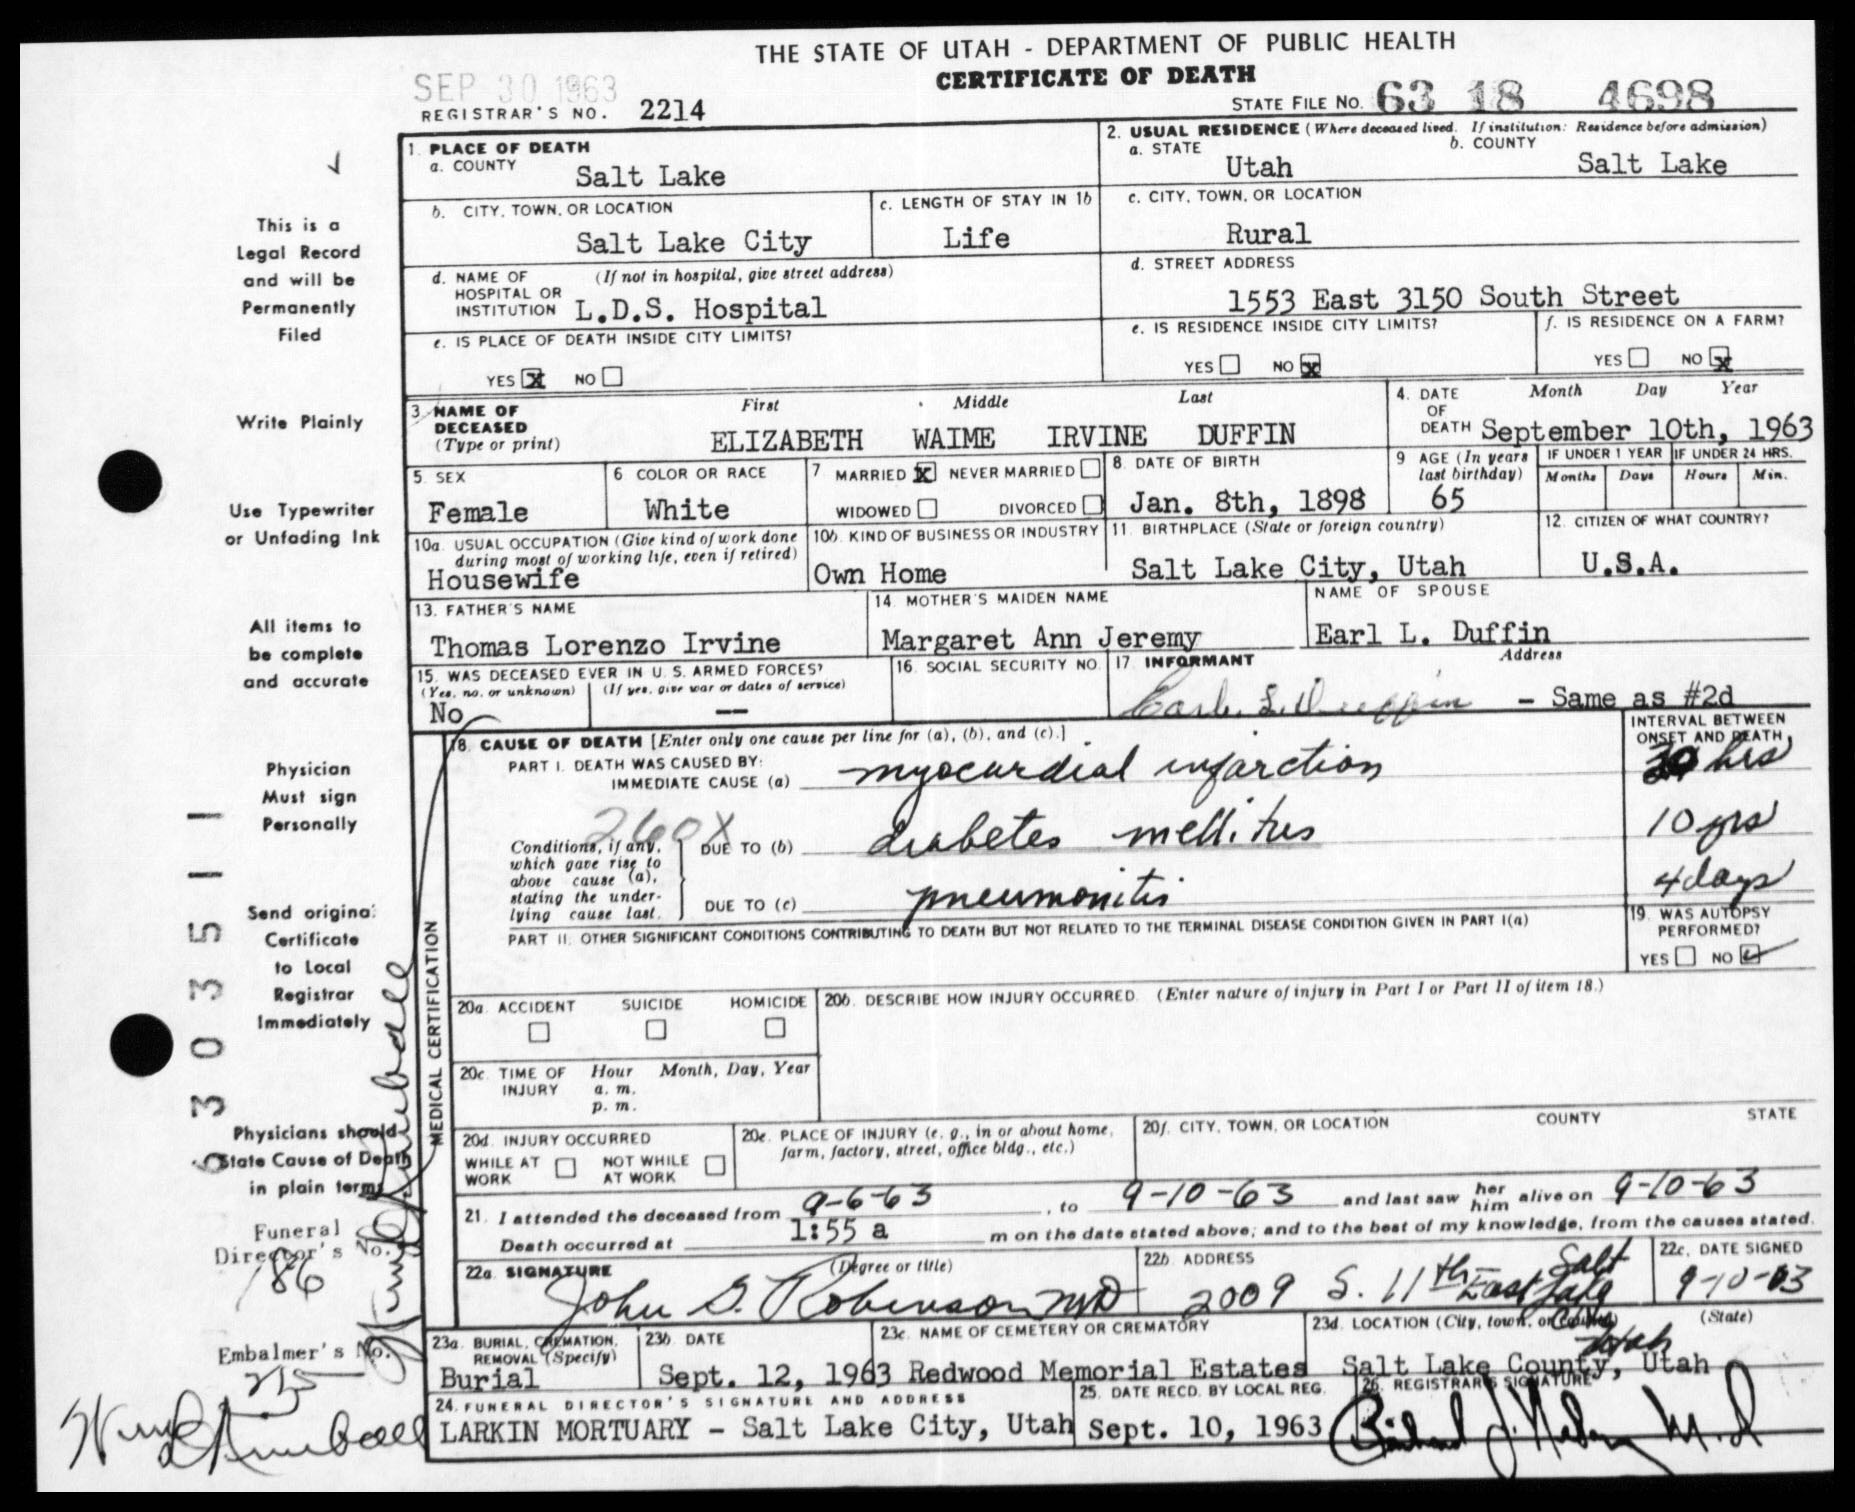 THE STATE OF UTAH - DEPARTMENT OF PUBLIC HEALTH
CERTIFICATE OF DEATH
SEP 30 1963
REGISTRAR'S NO. 2214
STATE FILE NO. 63 18 4698
1. PLACE OF DEATH
a. COUNTY
Salt Lake
2. USUAL RESIDENCE (Where deceased lived. If institution: Residence before admission)
a. STATE
Utah
b. COUNTY
Salt Lake
b. CITY, TOWN, OR LOCATION
Salt Lake City
c. LENGTH OF STAY IN 1b
Life
c. CITY, TOWN, OR LOCATION
Rural
d. NAME OF HOSPITAL OR INSTITUTION
(If not in hospital, give street address)
L.D.S. Hospital
d. STREET ADDRESS
1553 East 3150 South Street
e. IS PLACE OF DEATH INSIDE CITY LIMITS?
YES X NO
e. IS RESIDENCE INSIDE CITY LIMITS?
YES NO X
f. IS RESIDENCE ON A FARM?
YES NO X
3. NAME OF DECEASED
(Type or print)
First Middle Last
ELIZABETH WAIME IRVINE DUFFIN
4. DATE OF DEATH
Month Day Year
September 10th, 1963
5. SEX
Female
6 COLOR OR RACE
White
7 MARRIED X NEVER MARRIED
WIDOWED DIVORCED
8 DATE OF BIRTH
Jan. 8th, 1898
9 AGE (In years last birthday)
65
IF UNDER 1 YEAR
Months Days
IF UNDER 24 HRS.
Hours Min.
10a. USUAL OCCUPATION (Give kind of work done
during most of working life, even if retired)
Housewife
10b. KIND OF BUSINESS OR INDUSTRY
Own Home
11. BIRTHPLACE (State or foreign country)
Salt Lake City, Utah
12. CITIZEN OF WHAT COUNTRY?
U.S.A.
13. FATHER'S NAME
Thomas Lorenzo Irvine
14. MOTHER'S MAIDEN NAME
Margaret Ann Jeremy
NAME OF SPOUSE
Earl L. Duffin
15. WAS DECEASED EVER IN U. S. ARMED FORCES?
(Yes, no, or unknown) (If yes, give war or dates of service)
No --
16. SOCIAL SECURITY NO.
17. INFORMANT
Address
Earl L. Duffin - Same as #2d
MEDICAL CERTIFICATION
18. CAUSE OF DEATH [Enter only one cause per line for (a), (b), and (c).]
INTERVAL BETWEEN
ONSET AND DEATH
PART I. DEATH WAS CAUSED BY:
IMMEDIATE CAUSE (a) myocardial infarction hrs
260X
Conditions, if any,
which gave rise to
above cause (a),
stating the under-
lying cause last.
DUE TO (b) diabetes mellitus 10 yrs
DUE TO (c) pneumonitis 4 days
PART II. OTHER SIGNIFICANT CONDITIONS CONTRIBUTING TO DEATH BUT NOT RELATED TO THE TERMINAL DISEASE CONDITION GIVEN IN PART I(a)
19. WAS AUTOPSY
PERFORMED?
YES NO ✓
20a. ACCIDENT SUICIDE HOMICIDE
20b. DESCRIBE HOW INJURY OCCURRED. (Enter nature of injury in Part I or Part II of item 18.)
20c. TIME OF INJURY
Hour Month, Day, Year
a. m.
p. m.
20d. INJURY OCCURRED
WHILE AT WORK NOT WHILE AT WORK
20e. PLACE OF INJURY (e. g., in or about home,
farm, factory, street, office bldg., etc.)
20f. CITY, TOWN, OR LOCATION COUNTY STATE
21. I attended the deceased from 9-6-63, to 9-10-63 and last saw her him alive on 9-10-63
Death occurred at 1:55 a m on the date stated above; and to the best of my knowledge, from the causes stated.
22a. SIGNATURE (Degree or title)
John G. Robinson MD
22b. ADDRESS
2009 S. 11th East Salt Lake City Utah
22c. DATE SIGNED
9-10-63
23a. BURIAL, CREMATION,
REMOVAL (Specify)
Burial
23b. DATE
Sept. 12, 1963
23c. NAME OF CEMETERY OR CREMATORY
Redwood Memorial Estates
23d. LOCATION (City, town, or county) (State)
Salt Lake County, Utah
24. FUNERAL DIRECTOR'S SIGNATURE AND ADDRESS
LARKIN MORTUARY - Salt Lake City, Utah
25. DATE RECD. BY LOCAL REG.
Sept. 10, 1963
26. REGISTRAR'S SIGNATURE
M.D
This is a
Legal Record
and will be
Permanently
Filed
Write Plainly
Use Typewriter
or Unfading Ink
All items to
be complete
and accurate
Physician
Must sign
Personally
Send original
Certificate
to Local
Registrar
Immediately
Physicians should
State Cause of Death
in plain terms
Funeral
Director's No.
186
Embalmer's No.
Kimball
Kimball